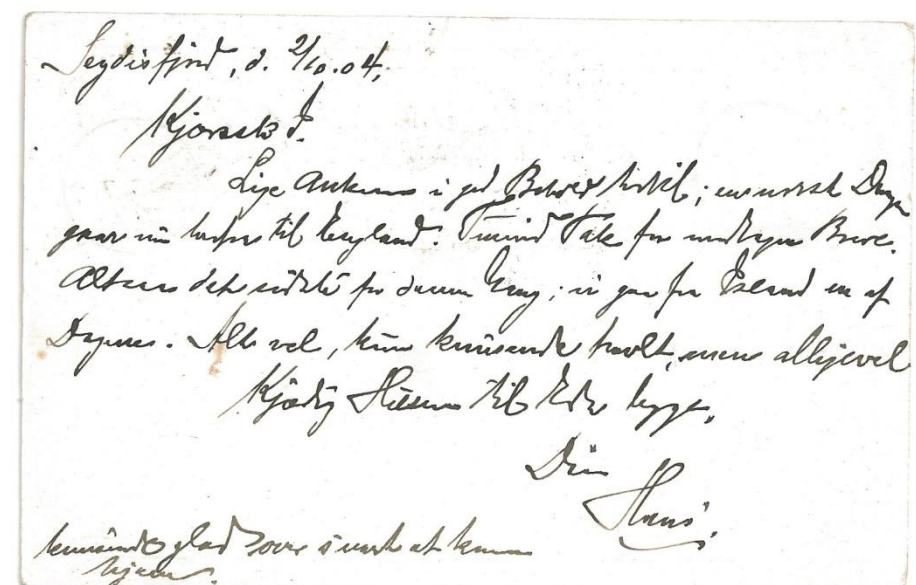 Seydisfjord, d. 2/10.04.
Kjæreste I.
Lige Ankomne i god Behold hertil; en norsk Damper
gaar nu herfra til England. Tusind Tak for modtagne Breve.
Altsaa det sidste fra denne Kant; vi gaar fra Island en af
Dagene. Alt vel, kun knusende travlt, men alligevel
Kjærlig Hilsen til Eder begge,
Din
Hans.
knusende glad over snart at komme
hjem.